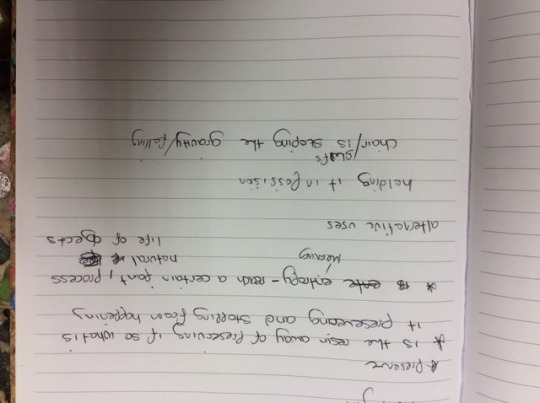 * Preserve
* is the resin away of preserving if so what is
it preserveing and stopping from happening
* entropy - reach a certain point, process
natural
life of objects
alternative uses
holding it in possison
chair/ is stoping the gravity/falling